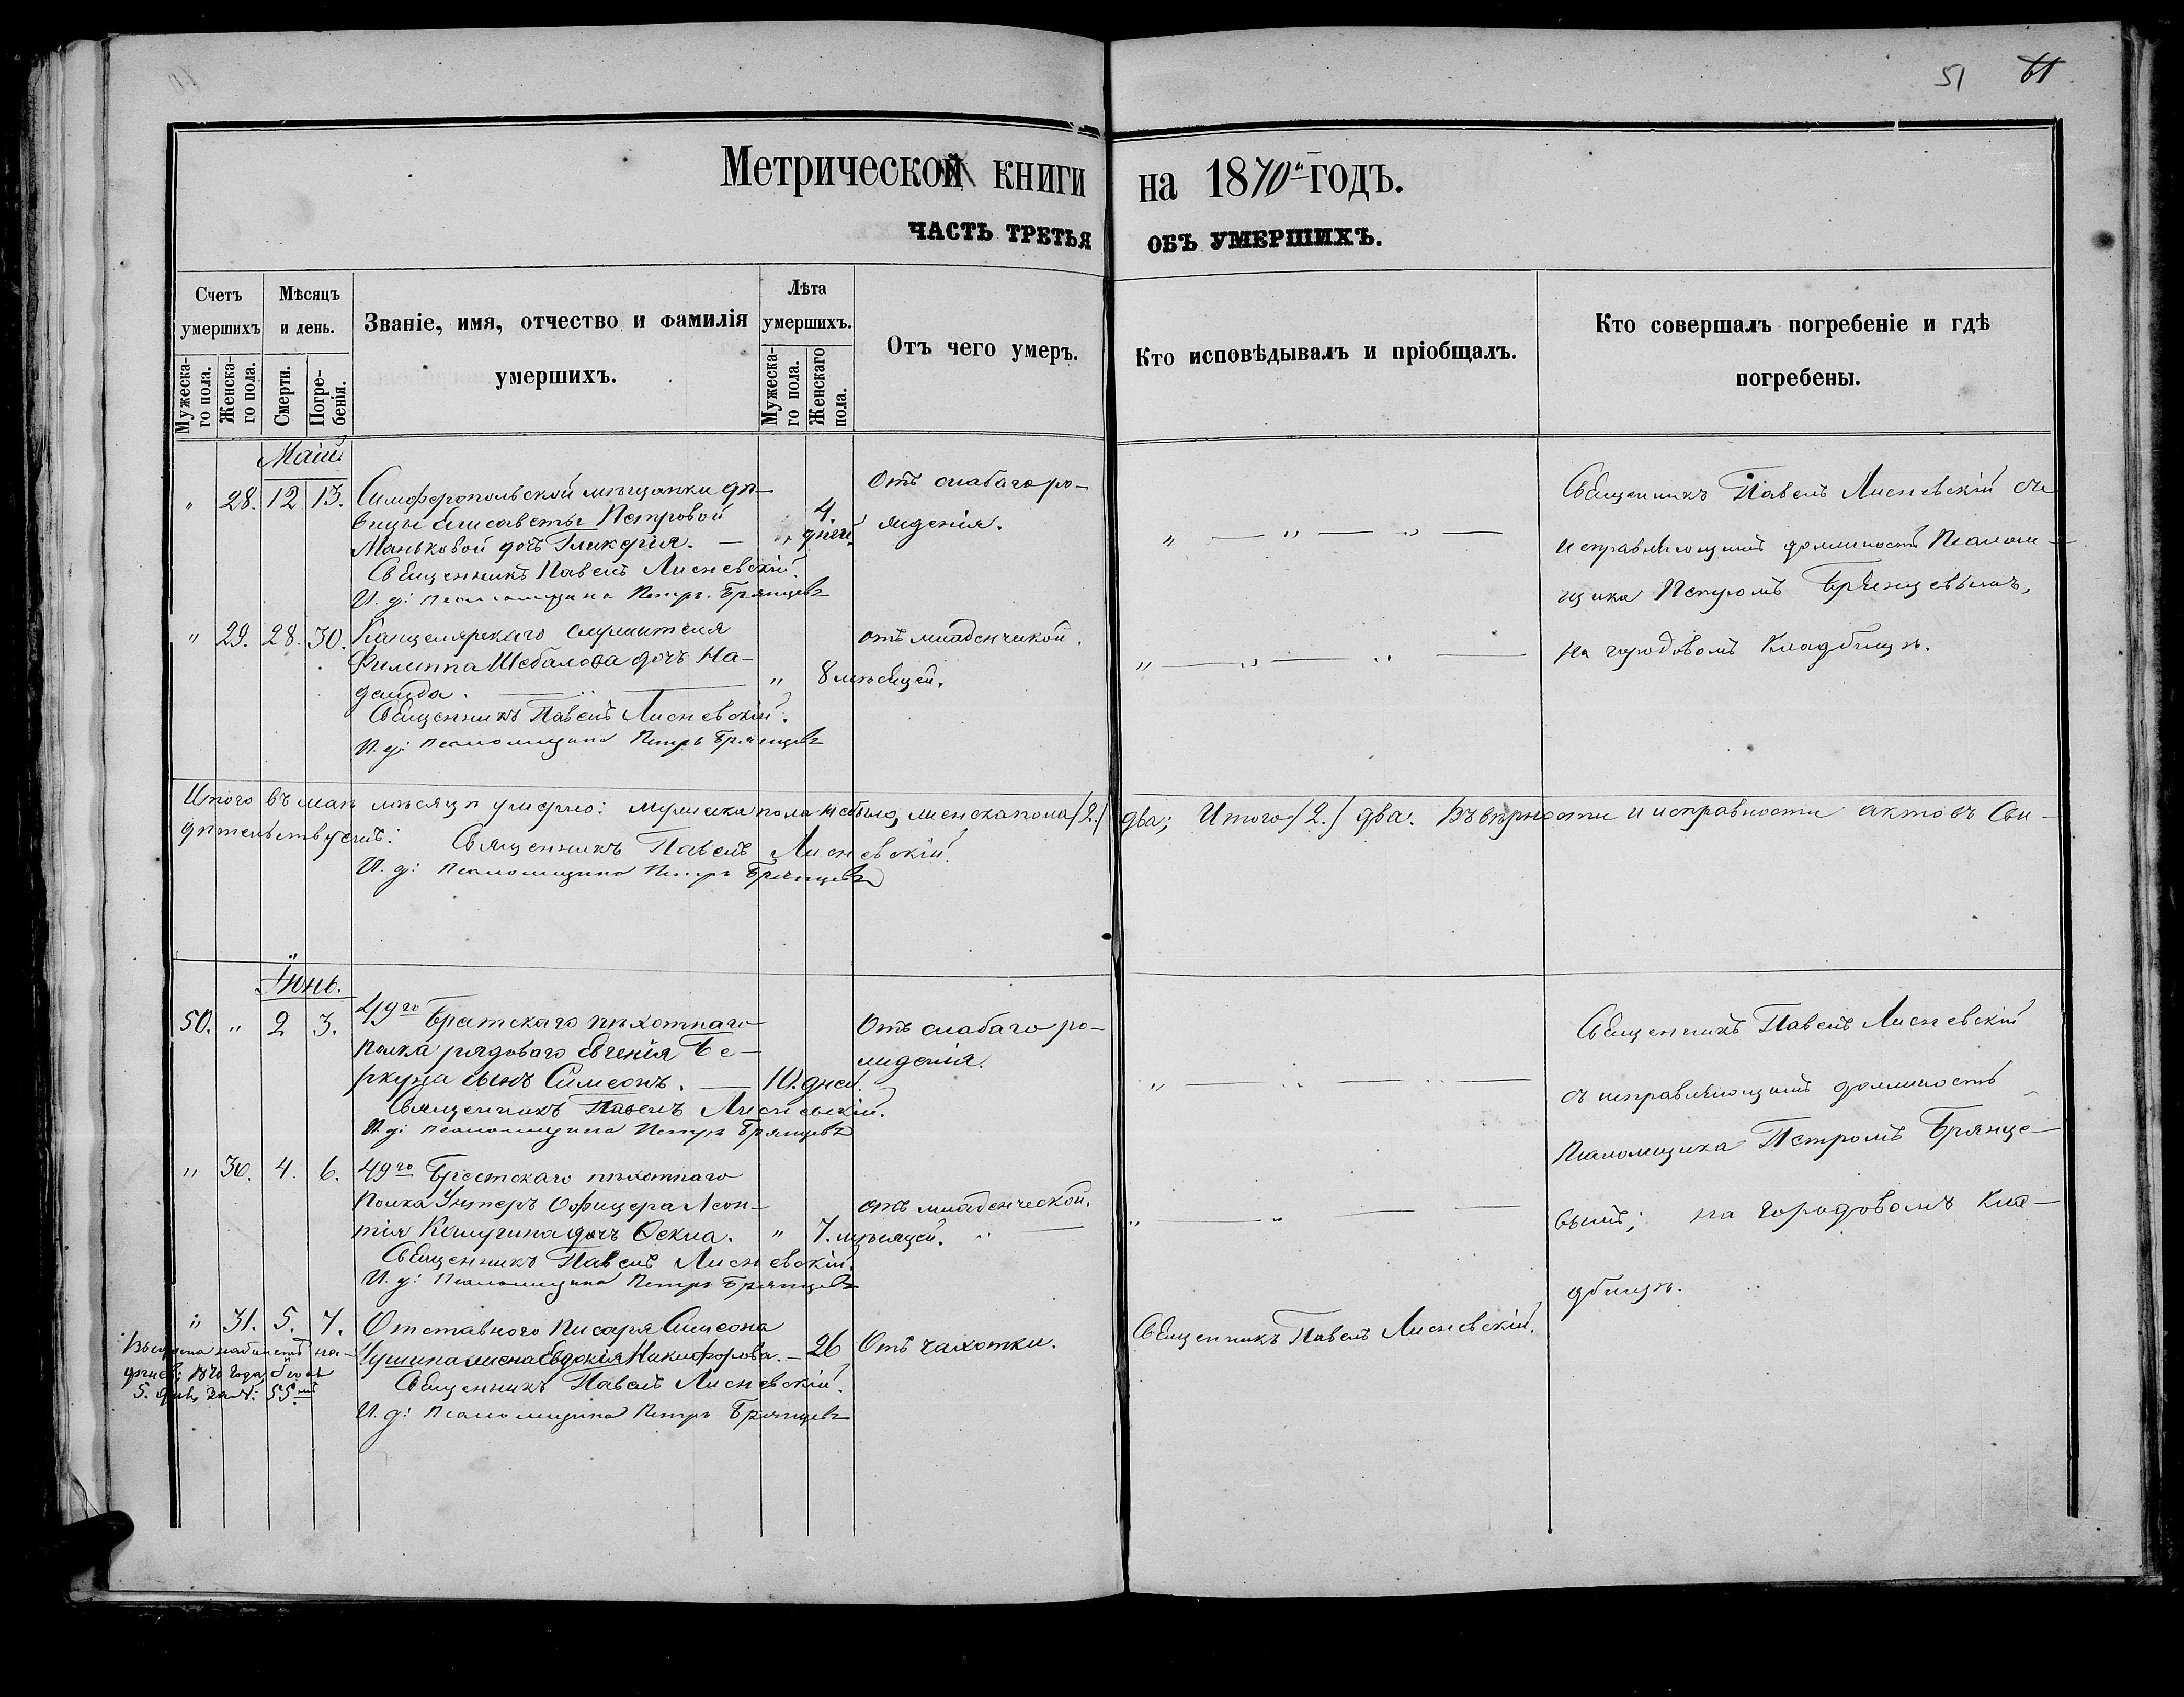 51 61
Метрической книги на 1870й годъ.
ЧАСТЬ ТРЕТЬЯ ОБЪ УМЕРШИХЪ.
Счетъ умершихъ
Мужеска-го пола.
Женска-го пола.
Мѣсяцъ и день.
Смерти.
Погре-бенія.
Званіе, имя, отчество и фамилія умершихъ.
Лѣта умершихъ.
Мужеска-го пола.
Женскаго пола.
Отъ чего умеръ.
Кто исповѣдывалъ и пріобщалъ.
Кто совершалъ погребеніе и гдѣ погребены.
Маій
" 28. 12 13. Симферопольской мѣщанки дѣ-
вицы Елисаветы Петровой
Маньковой дочь Гликерія. — " 4. дней.
Отъ слабаго ро-
жденія.
" — " — " —
Священникъ Павелъ Лисневскій.
И. д: псаломщика Петръ Брянцевъ
Священникъ Павелъ Лисневскій съ
исправляющимъ должность Псалом-
щика Петромъ Брянцевымъ,
на городовомъ Кладбищѣ.
" 29. 28. 30. Канцелярскаго служителя
Филиппа Шебалова дочь На-
дежда. — " — " 8 мѣсяцей.
отъ младенческой.
" — " — " —
Священникъ Павелъ Лисневскій.
И. д: псаломщика Петръ Брянцевъ
Итого въ маѣ мѣсяцѣ умерло: мужеска пола не было, женска пола /2./ два; Итого /2./ два. Въ вѣрности и исправности актовъ Сви-
дѣтельствуемъ: Священникъ Павелъ Лисневскій.
И. д: Псаломщика Петръ Брянцевъ
Іюнь.
50. " 2 3. 49го Брестскаго пѣхотнаго
полка рядоваго Евгенія Бе-
ркуца сынъ Симеонъ. — 10. дней.
Отъ слабаго ро-
жденія.
" — " — " —
Священникъ Павелъ Лисневскій.
И. д: псаломщика Петръ Брянцевъ
Священникъ Павелъ Лисневскій
съ исправляющимъ должность
Псаломщика Петромъ Брянце-
вымъ; на городовомъ Кла-
дбищѣ.
" 30. 4. 6. 49го Брестскаго пѣхотнаго
Полка Унтеръ Офицера Леон-
тія дочь Ѳекла. " 7. мѣсяцей.
отъ младенческой.
" — " — —
Священникъ Павелъ Лисневскій.
И. д: Псаломщика Петръ Брянцевъ
" 31. 5. 7. Отставного Писаря Симеона
жена Евдокія Никифорова. — 26 Отъ чахотки.
Священникъ Павелъ Лисневскій.
Священникъ Павелъ Лисневскій.
И. д: Псаломщика Петръ Брянцевъ
года
5. 55